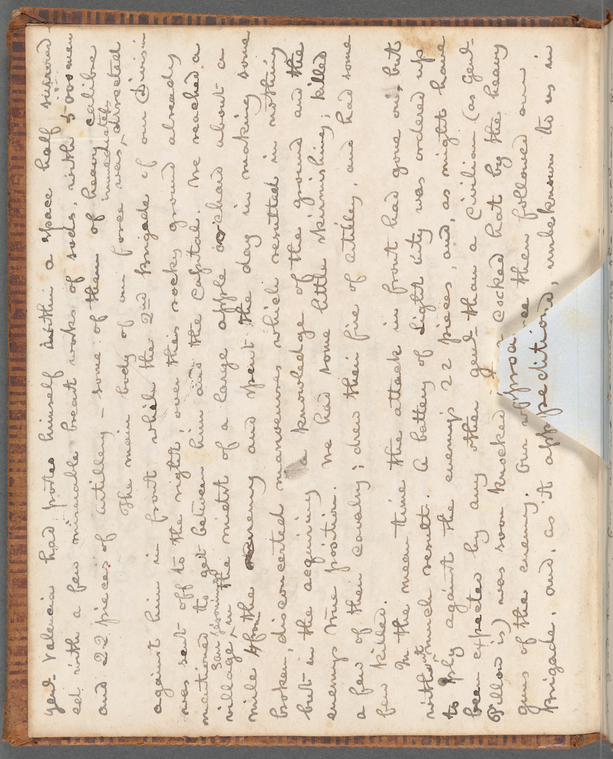 Genl Valencia had posted himself within a space half surround-
ed with a few miserable breast works of sods, with 5000 men
and 22 pieces of artillery – some of them of heavy calibre
The main body of our force was immediately directed
against him in front while the 2nd Brigade of our Division
was sent off to the right; over this rocky ground already
mentioned to get between him and the Capital. We reached a
village, San Jeronimo in the midst of a large apple orchard about a
mile from the enemy and spent the day in making some
broken, disconcerted manoeuvres which resulted in nothing
but in the acquiring a knowledge of the ground and the
enemys position. We had some little skirmishing; killed
a few of their cavalry; drew their fire of artillery, and had some
few killed.
In the mean time the attack in front had gone on, but
without much result. A battery of light arty was ordered up
to play against the enemys 22 pieces, and, as might have
been expected by any other genl than a Civilian (as Genl
Pillow is) was soon knocked cocked hat by the heavy
guns of the enemy. Our then followed our
Brigade, and, as it app peditions, unbeknown to us in